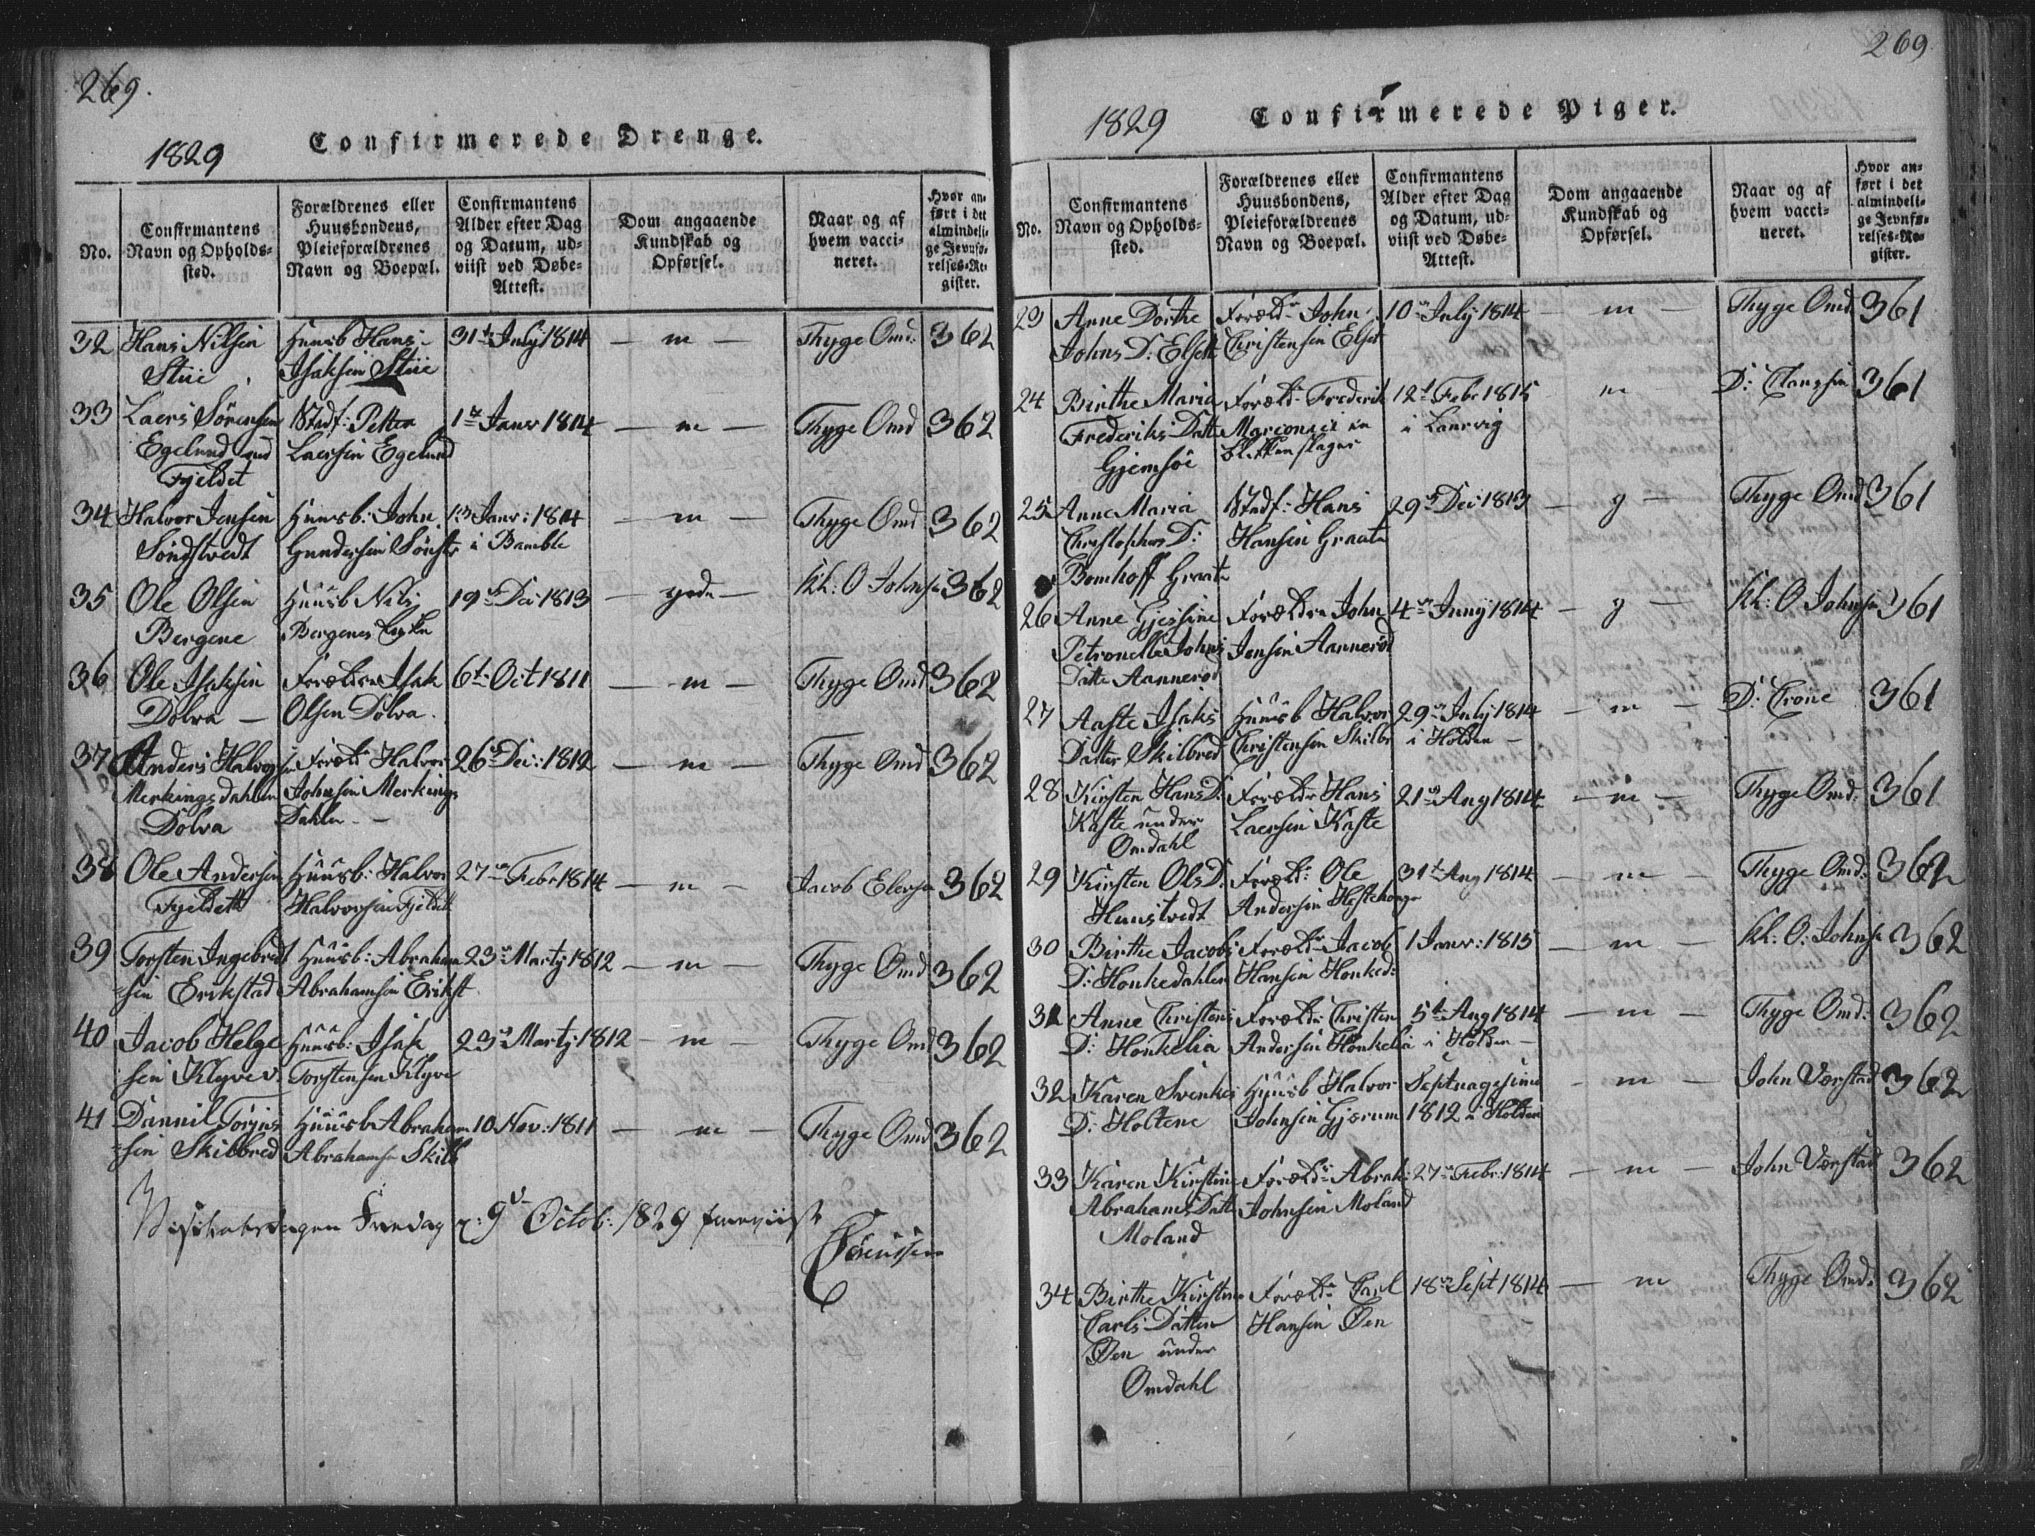 269.
1829
Confirmerede Drenge.
No.
Confirmantens Navn og Opholdssted.
Forældrenes eller Huusbondens, Pleieforældrenes Navn og Boepæl.
Confirmantens Alder efter Dag og Datum, udviist ved Døbe-Attest.
Dom angaaende Kundskab og Opførsel.
Naar og af hvem vaccineret.
Hvor anført i det almindelige Jevnførelses-Register.
32 Hans Nilsen Huusb Hans 31t July 1814 — m — Thyge Omd: 362
Stüe Isaksen Stüe
33 Laers Sørensen Stedf: Petter 1te Janr 1814 — m — Thyge Omd 362
Egelund Laersen Egelund
Fjeldet
34 Halvor Jensen Huusb: John 13 Janr: 1814 — m — Thyge Omd 362
Sondstvedt Gundersen i Bamble
35 Ole Olsen Huusb Nils 19 Dec 1813 — gode — Kk: O Johnsen 362
Bergene Bergenes
36 Ole Isaksen Forældre Isak 6t Oct 1811 — m — Thyge Omd 362
Dolva — Olsen Dolva.
37 Anders Halvorsen Foræld: Halvor 26 Dec: 1812 — m — Thyge Omd 362
Merkingsdahlen Johnsen Merkings
Dolva Dahlen —
38 Ole Andersen Huusb: Halvor 27 Febr 1814 — m — Jacob Elersen 362
Fjeldett Halvorsen Fjeldett
39 Torsten Ingebret Huusb: Abraham 23 Marty 1812 — m — Thyge Omd 362
-sen Erikstad Abrahamsen Erikst
40 Jacob Helge Huusb: Isak 23 Marty 1812 — m — Thyge Omd 362
sen Klyve Torstensen Klyve
41 Daniel Torjus Huusb Abraham 10 Nov: 1811 — m — Thyge Omd 362
-sen Skilbred Abrahamsen Skilb
Fredag 9 Octob: 1829
Sørenssen
269
1829
Confirmerede Piger.
No.
Confirmantens Navn og Opholdssted.
Forældrenes eller Huusbondens, Pleieforældrenes Navn og Boepæl.
Confirmantens Alder efter Dag og Datum, udviist ved Døbe-Attest.
Dom angaaende Kundskab og Opførsel.
Naar og af hvem vaccineret.
Hvor anført i det almindelige Jevnførelses-Register.
23 Anne Dorthe Foræld: John 10 July 1814 — m — Thyge Omd 361
Johns D: Elset Christensen Elset
24 Birthe Maria Foræld: Frederik 12t Febr 1815 m D: Clausen 361
Frederiks Datt i Laurvig
Gjemsøe Blikkenslager
25 Anne Maria Stedf: Hans 29 Dec: 1813 — g — Thyge Omd 361
Christophers D: Hansen Graaten
Bomhoff Graaten
26 Anne Gjessine Forældre John 4 Juny 1814 — g — Kk: O Johnsen 361
Petronelle Johns Jensen Aannerød
Datter Aannerød
27 Aaste Isaks Huusb Halvor 29 July 1814 — m — D: Crone 361
Datter Skilbred Christensen Skilbr i Holden —
28 Kirsten Hans D: Foræld: Hans 21 Aug 1814 — m — Thyge Omd: 361
Kaste under Laersen Kaste
Omdahl
29 Kirsten Ols D: Foræld: Ole 31t Aug 1814 — m — Thyge Omd: 362
Haustvedt Andersen Hestehougen
30 Birthe Jacobs Foræld: Jacob 1 Janr: 1815 — m — Kk: O: Johnse 362
D: Honkedahlen Hansen Honked:
31 Anne Christens Foræld: Christen 5t Aug 1814 — m — Thyge Omd: 362
D: Honkelia Andersen Honkelia i Holden —
32 Karen Svenkes Huusb Halvor Septuagesima — m — John Værstad 362
D: Holtene Johnsen Gjærum 1812 i Holden
33 Karen Kirstine Foræld: Abrah: 27 Febr: 1814 — m — John Værstad 362
Abrahams Datt Johnsen Moland
Moland
34 Birthe Kirstine Foræld: Carl 18 Sept 1814 — m — Thyge Omd: 362
Carls Datter Hansen Øen
Øen under
Omdahl